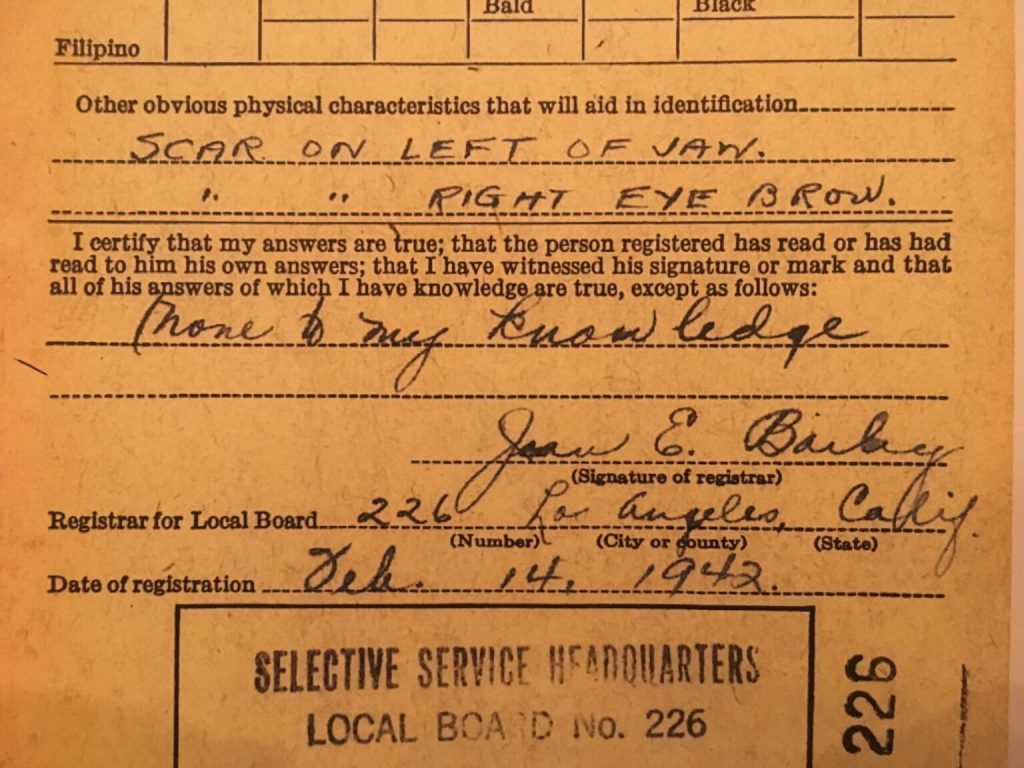 Bald Black
Filipino
Other obvious physical characteristics that will aid in identification
SCAR ON LEFT OF JAW.
" " RIGHT EYE BROW.
I certify that my answers are true; that the person registered has read or has had
read to him his own answers; that I have witnessed his signature or mark and that
all of his answers of which I have knowledge are true, except as follows:
None to my knowledge
E.
(Signature of registrar)
Registrar for Local Board 226 Los Angeles, Calif.
(Number) (City or county) (State)
Date of registration Feb. 14, 1942.
SELECTIVE SERVICE HEADQUARTERS
LOCAL BOARD No. 226
226